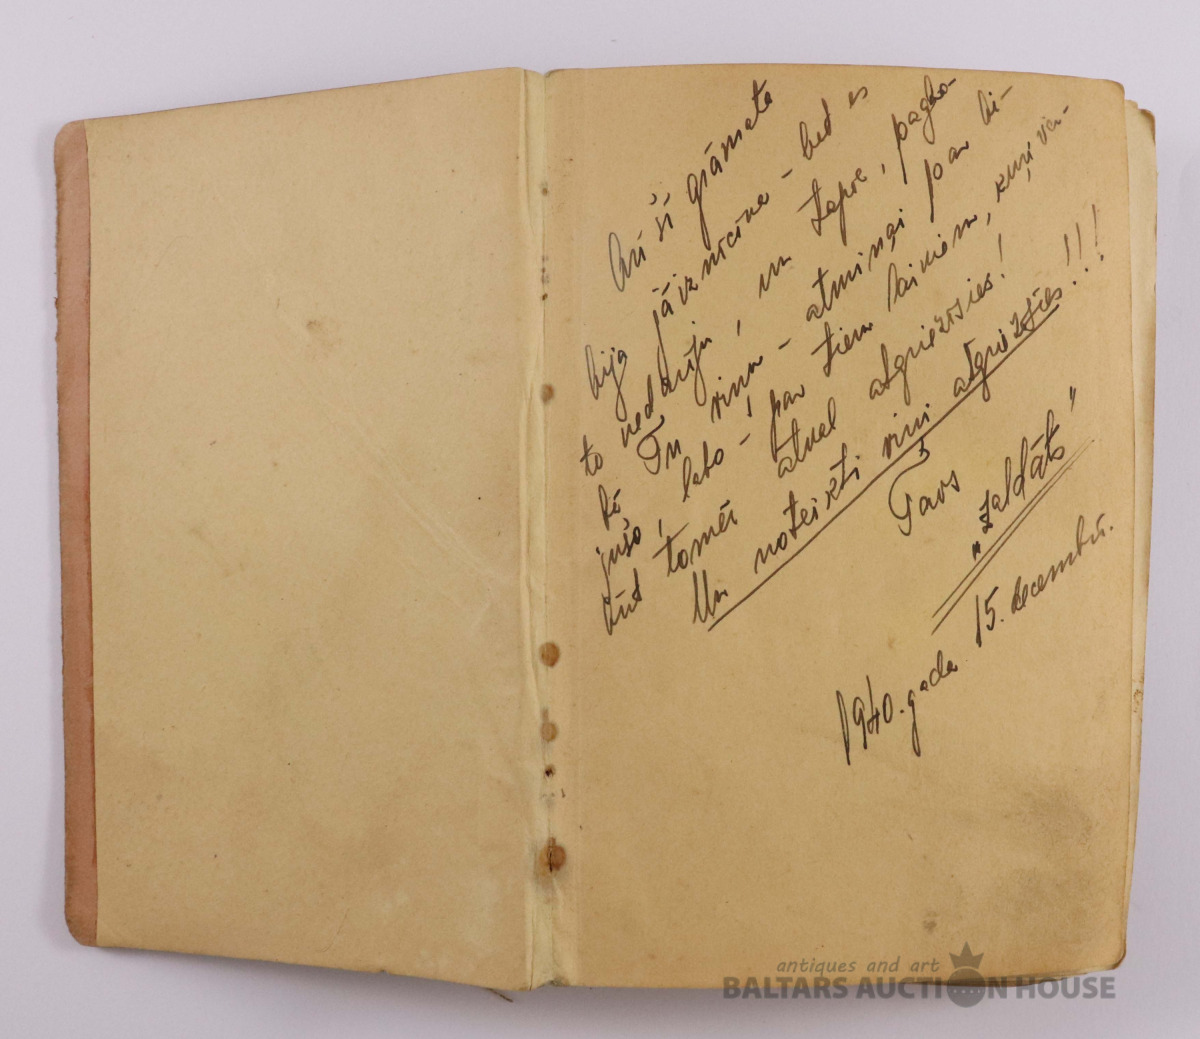 Arī šī grāmata
bija jāiznīcina - bet es
to nedarīju, un Tapēc, pagla-
bā Tu viņu - atmiņai par bi-
jušo, labo - par tiem laikiem, kuŗi var-
būt tomēr atnāl atgriezīsies!
Un noteikti viņi atgriezīsies!!!
Tavs
„Zaldāts"
1940. gada 15. decembrī.
antiques and art
BALTARS AUCTION HOUSE